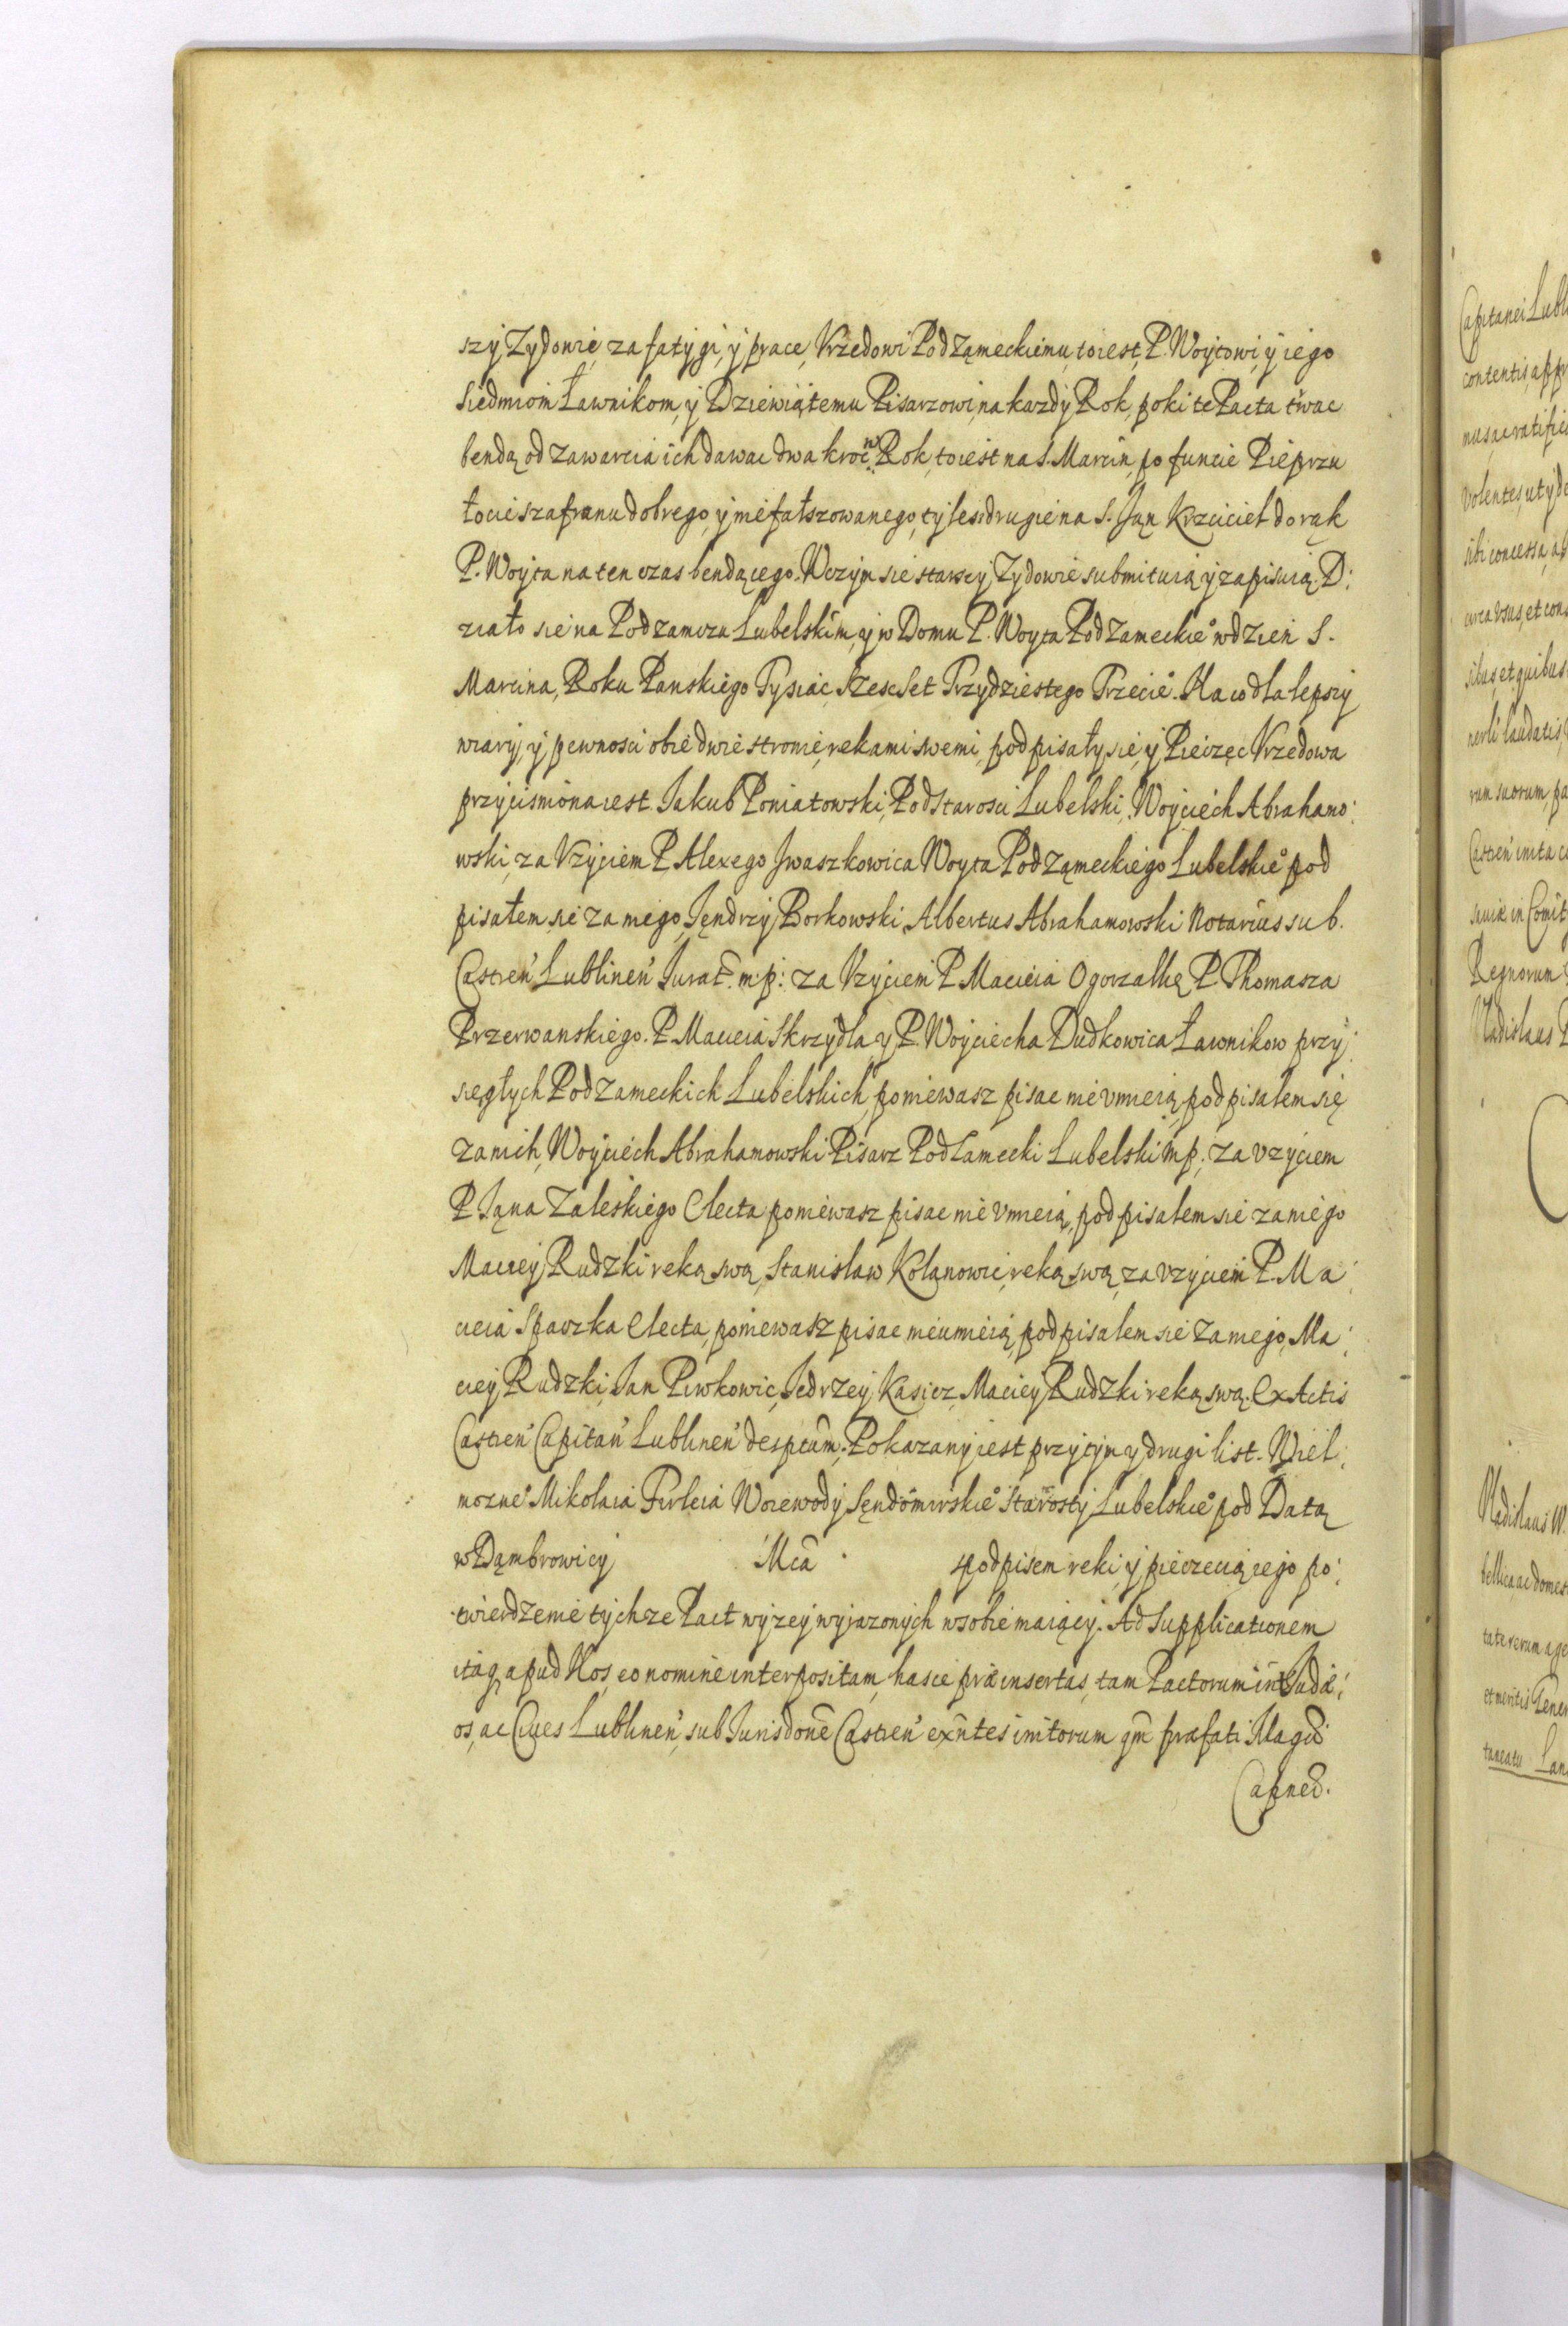 szÿ Zydowie, za fatygi, ÿ prace, Vrzedowi Pod Ząmeckiemu, to iest, P. Woÿtowi, ÿ iego
Siedmiom Ławnikom, ÿ Dziewiątemu Pisarzowi, na kazdÿ Rok, poki te Pacta trwac
bendą od zawarcia ich dawac dwa kroc w Rok, to iest na S. Marcin, po funcie Pieprzu
łocie szafranu dobrego, ÿ nie fałszowanego, tÿlesz drugie na S. Ján Krzciciel do rąk
P. Woÿta na ten czas bendącego. W czÿm sie starsÿ Zydowie submituią ÿ zapisuią. D:
ziało sie na Pod zamczu Lubelskim, ÿ w Domu P. Woyta Pod Zameckie° w dzień S.
Marcina, Roku Panskiego Tysiąc Szesc Set Trzydziestego Trzecie°. Na co dla lepszÿ
wiarÿ, ÿ pewnosci obie dwie stronie, rekami swemi, podpisałysie, ÿ Pieczęc Vrzedowa
przycisniona iest. Jakub Poniatowski, Pod Starosci Lubelski, Woÿciech Abrahamo:
wski, za Vzÿciem P. Alexego Jwaszkowica Woyta Pod Ząmeckiego Lubelskie° pod
pisałem sie za niego, Jęndrzÿ Borkowski, Albertus Abrahamowski Notarius sub.
Castreń Lublineń Jurat̃. m.p: za Vzÿciem P. Macieia Ogorzałki P. Thomasza
Przerwanskiego. P. Macieia Skrzÿdla, ÿ P. Woÿciecha Dudkowica Ławnikow przÿ:
sięgłych Pod Zameckich Lubelskich, poniewasz pisac nie vmieią, podpisałem się
za nich, Woÿciech Abrahamowski Pisarz Pod Zamecki Lubelski mp: za vzÿciem
P. Jąna Zaleskiego Electa poniewasz pisac nie Vmieią, podpisałem sie za niego
Macieÿ Rudzki reką swą, Stanisław Kolanowic, reką swą, za vzyciem P. Ma:
cieia Spaczka Electa, poniewasz pisac nie umieią, podpisałem sie za niego, Ma:
cieÿ Rudzki, Jan Piwkowic, Jedrzeÿ Kasicz, Macieÿ Rudzki reką swą. Ex Actis
Castreń Capitań Lublineń desptum̃. Pokazanÿ iest przÿtÿm ÿ drugi list. Wiel:
mozne° Mikolaia Firleia Woiewodÿ Sęndomirskie° Starostÿ Lubelskie° pod Datą
w Dąmbrowicÿ Mcã s podpisem reki, ÿ pieczecią iego po:
twierdzenie tÿchze Pact wyzeÿ wyrazonÿch w sobie maiącÿ. Ad Supplicationem
itaq, apud Nos, eo nomine interpositam, hasce præinsertas, tam Pactorum inter Judæ:
os, ac Ciues Lublineń, sub Jurisdone Castreń exñtes initorum qm̃ præfati Magci
Capnei.